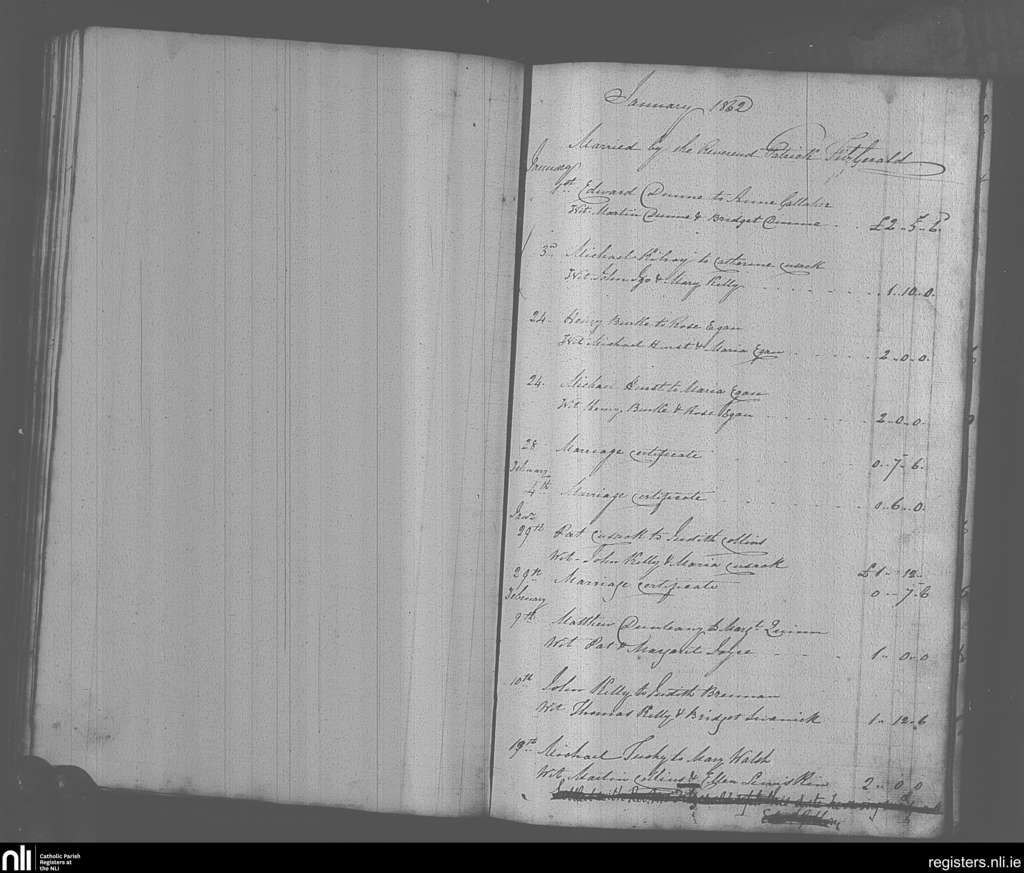 January 1862
Married by the Reverend Patrick FitzGerald
January
1st Edward Dunne to Anne
Wit. Martin Dunne & Bridget Dunne £2-5-6
3rd Michael Kilroy to Catherine Cusack
Wit John Igo & Mary Kelly 1-10-0
24 Henry Burke to Rose Egan
Wit Michael Hurst & Maria Egan 2-0-0
24 Michael Hurst to Maria Egan
Wit Henry Burke & Rose Egan 2-0-0
28 Marriage certificate 0-7-6
February
4th Marriage certificate 0-6-0
Jany
29th Pat Cusack to Judith Collins
Wit John Kelly & Maria Cusack £1-12-
29th Marriage certificate 0-7-6
February
9th Matthew to Margt Quinn
Wit Pat & Margaret Joyce 1-0-0
10th John Kelly to Judith Brennan
Wit Thomas Kelly & Bridget Swanick 1-12-6
19th Michael to Mary Walsh
Wit Martin Collins & Ellen 2-0-0
nli Catholic Parish
Registers at
the NLI
registers.nli.ie